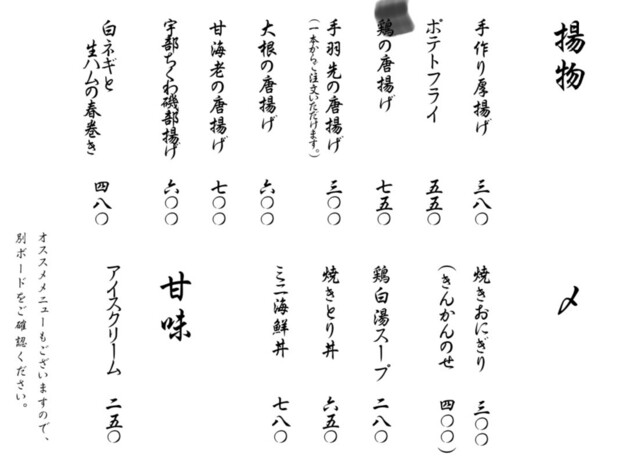 揚物
手作り厚揚げ 三八〇
ポテトフライ 五五〇
鶏の唐揚げ 七五〇
手羽先の唐揚げ 三〇〇
(一本からご注文いただけます。)
大根の唐揚げ 六〇〇
甘海老の唐揚げ 七〇〇
宇部ちくわ磯部揚げ 六〇〇
白ネギと
生ハムの春巻き 四八〇
〆
焼きおにぎり 三〇〇
(きんかんのせ 四〇〇)
鶏白湯スープ 二八〇
焼きとり丼 六五〇
ミニ海鮮丼 七八〇
甘味
アイスクリーム 二五〇
オススメメニューもございますので、
別ボードをご確認ください。